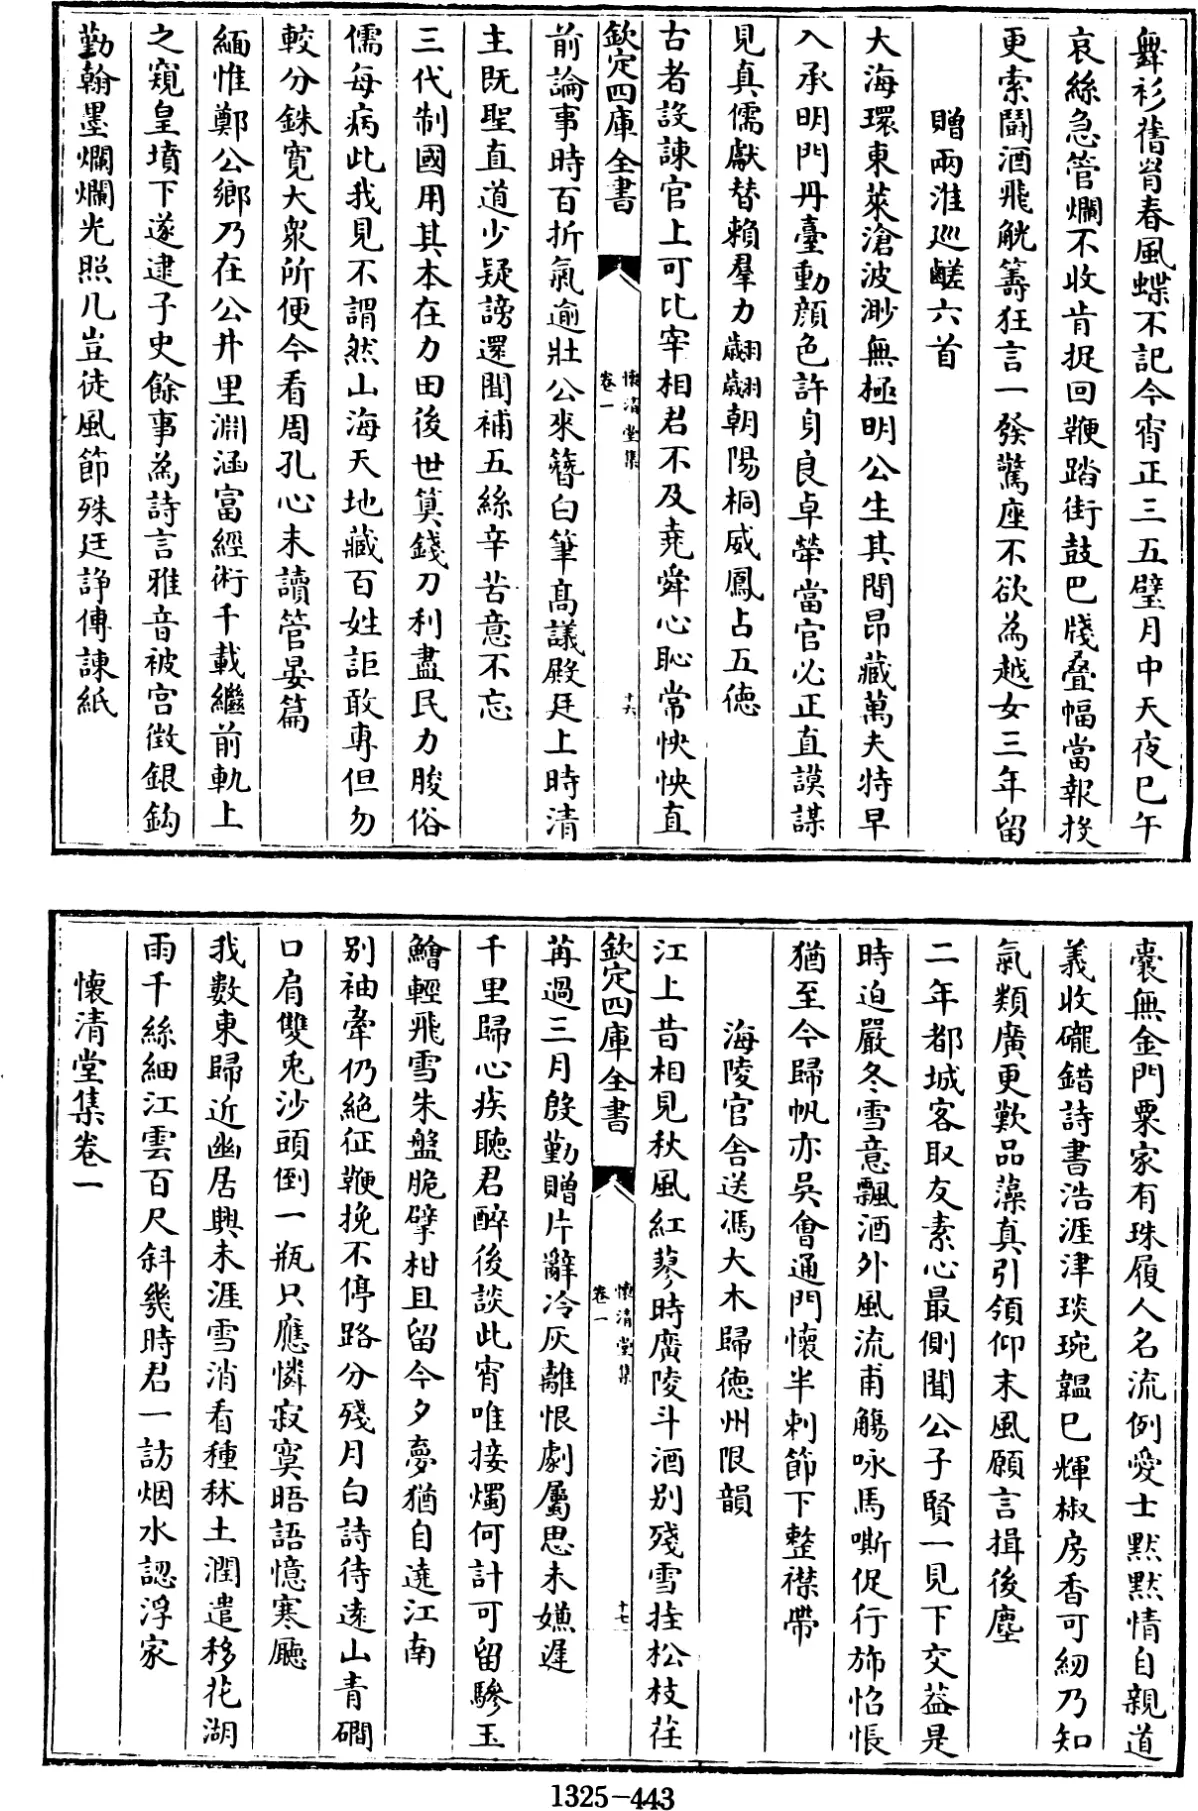 舞衫舊省春風蝶不記今宵正三五璧月中天夜已午
哀絲急管爛不收肯捉回鞭踏街鼓巴牋疊幅當報挨
更索鬬酒飛觥籌狂言一發驚座不欲為越女三年留
贈兩淮巡鹺六首
大海環東萊滄波渺無極明公生其間昂藏萬夫特早
入承明門丹臺動顔色許身良卓犖當官必正直謨謀
見真儒獻替賴羣力翽翽朝陽桐威鳳占五徳
古者設諫官上可比宰相君不及堯舜心恥常怏怏直
欽定四庫全書
懷清堂集
卷一
十六
前論事時百折氣逾壯公來簪白筆髙議殿廷上時清
主既聖直道少疑謗還聞補五絲辛苦意不忘
三代制國用其本在力田後世算錢刀利盡民力朘俗
儒每病此我見不謂然山海天地藏百姓詎敢專但勿
較分銖寛大衆所便今看周孔心未讀管晏篇
緬惟鄭公鄉乃在公井里淵涵富經術千載繼前軌上
之窺皇墳下遂逮子史餘事為詩言雅音被宫徴銀鈎
勤翰墨爛爛光照几豈徒風節殊廷諍傳諫紙
囊無金門粟家有珠履人名流例愛士黙黙情自親道
義收礲錯詩書浩涯津琰琬韞已輝椒房香可紉乃知
氣類廣更歎品藻真引領仰末風願言揖後塵
二年都城客取友素心最側聞公子賢一見下交葢是
時迫嚴冬雪意飄酒外風流甫觴咏馬嘶促行斾怊悵
猶至今歸帆亦吳會通門懷半刺節下整襟帶
海陵官舎送馮大木歸徳州限韻
江上昔相見秋風紅蓼時廣陵斗酒别殘雪挂松枝荏
欽定四庫全書
懷清堂集
卷一
十七
苒過三月慇勤贈片辭冷灰離恨劇屬思未嫌遲
千里歸心疾聽君醉後談此宵唯接燭何計可留驂玉
鱠輕飛雪朱盤脆擘柑且留今夕夢猶自遶江南
别袖牽仍絶征鞭挽不停路分殘月白詩待逺山青磵
口肩雙兎沙頭倒一瓶只應憐寂寞晤語憶寒廳
我數東歸近幽居興未涯雪消看種秫土潤遣移花湖
雨千絲細江雲百尺斜幾時君一訪烟水認浮家
懷清堂集卷一
1325-443